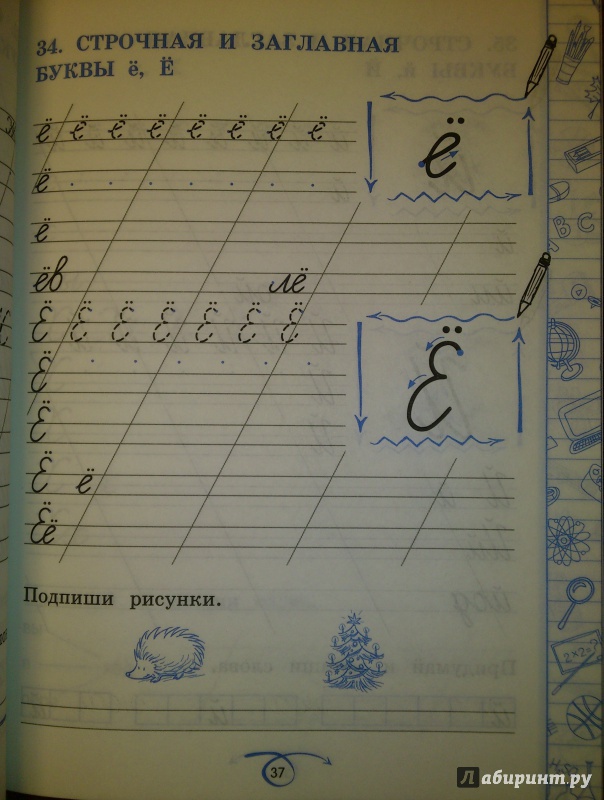 34. СТРОЧНАЯ И ЗАГЛАВНАЯ
БУКВЫ ё, Ё
ё ё ё ё ё ё ё ё
ё
ё
ё
ёв лё
Ё Ё Ё Ё Ё Ё Ё
Ё
Ё
Ё
Ё ё
Ёё
Подпиши рисунки.
37
Лабиринт.ру